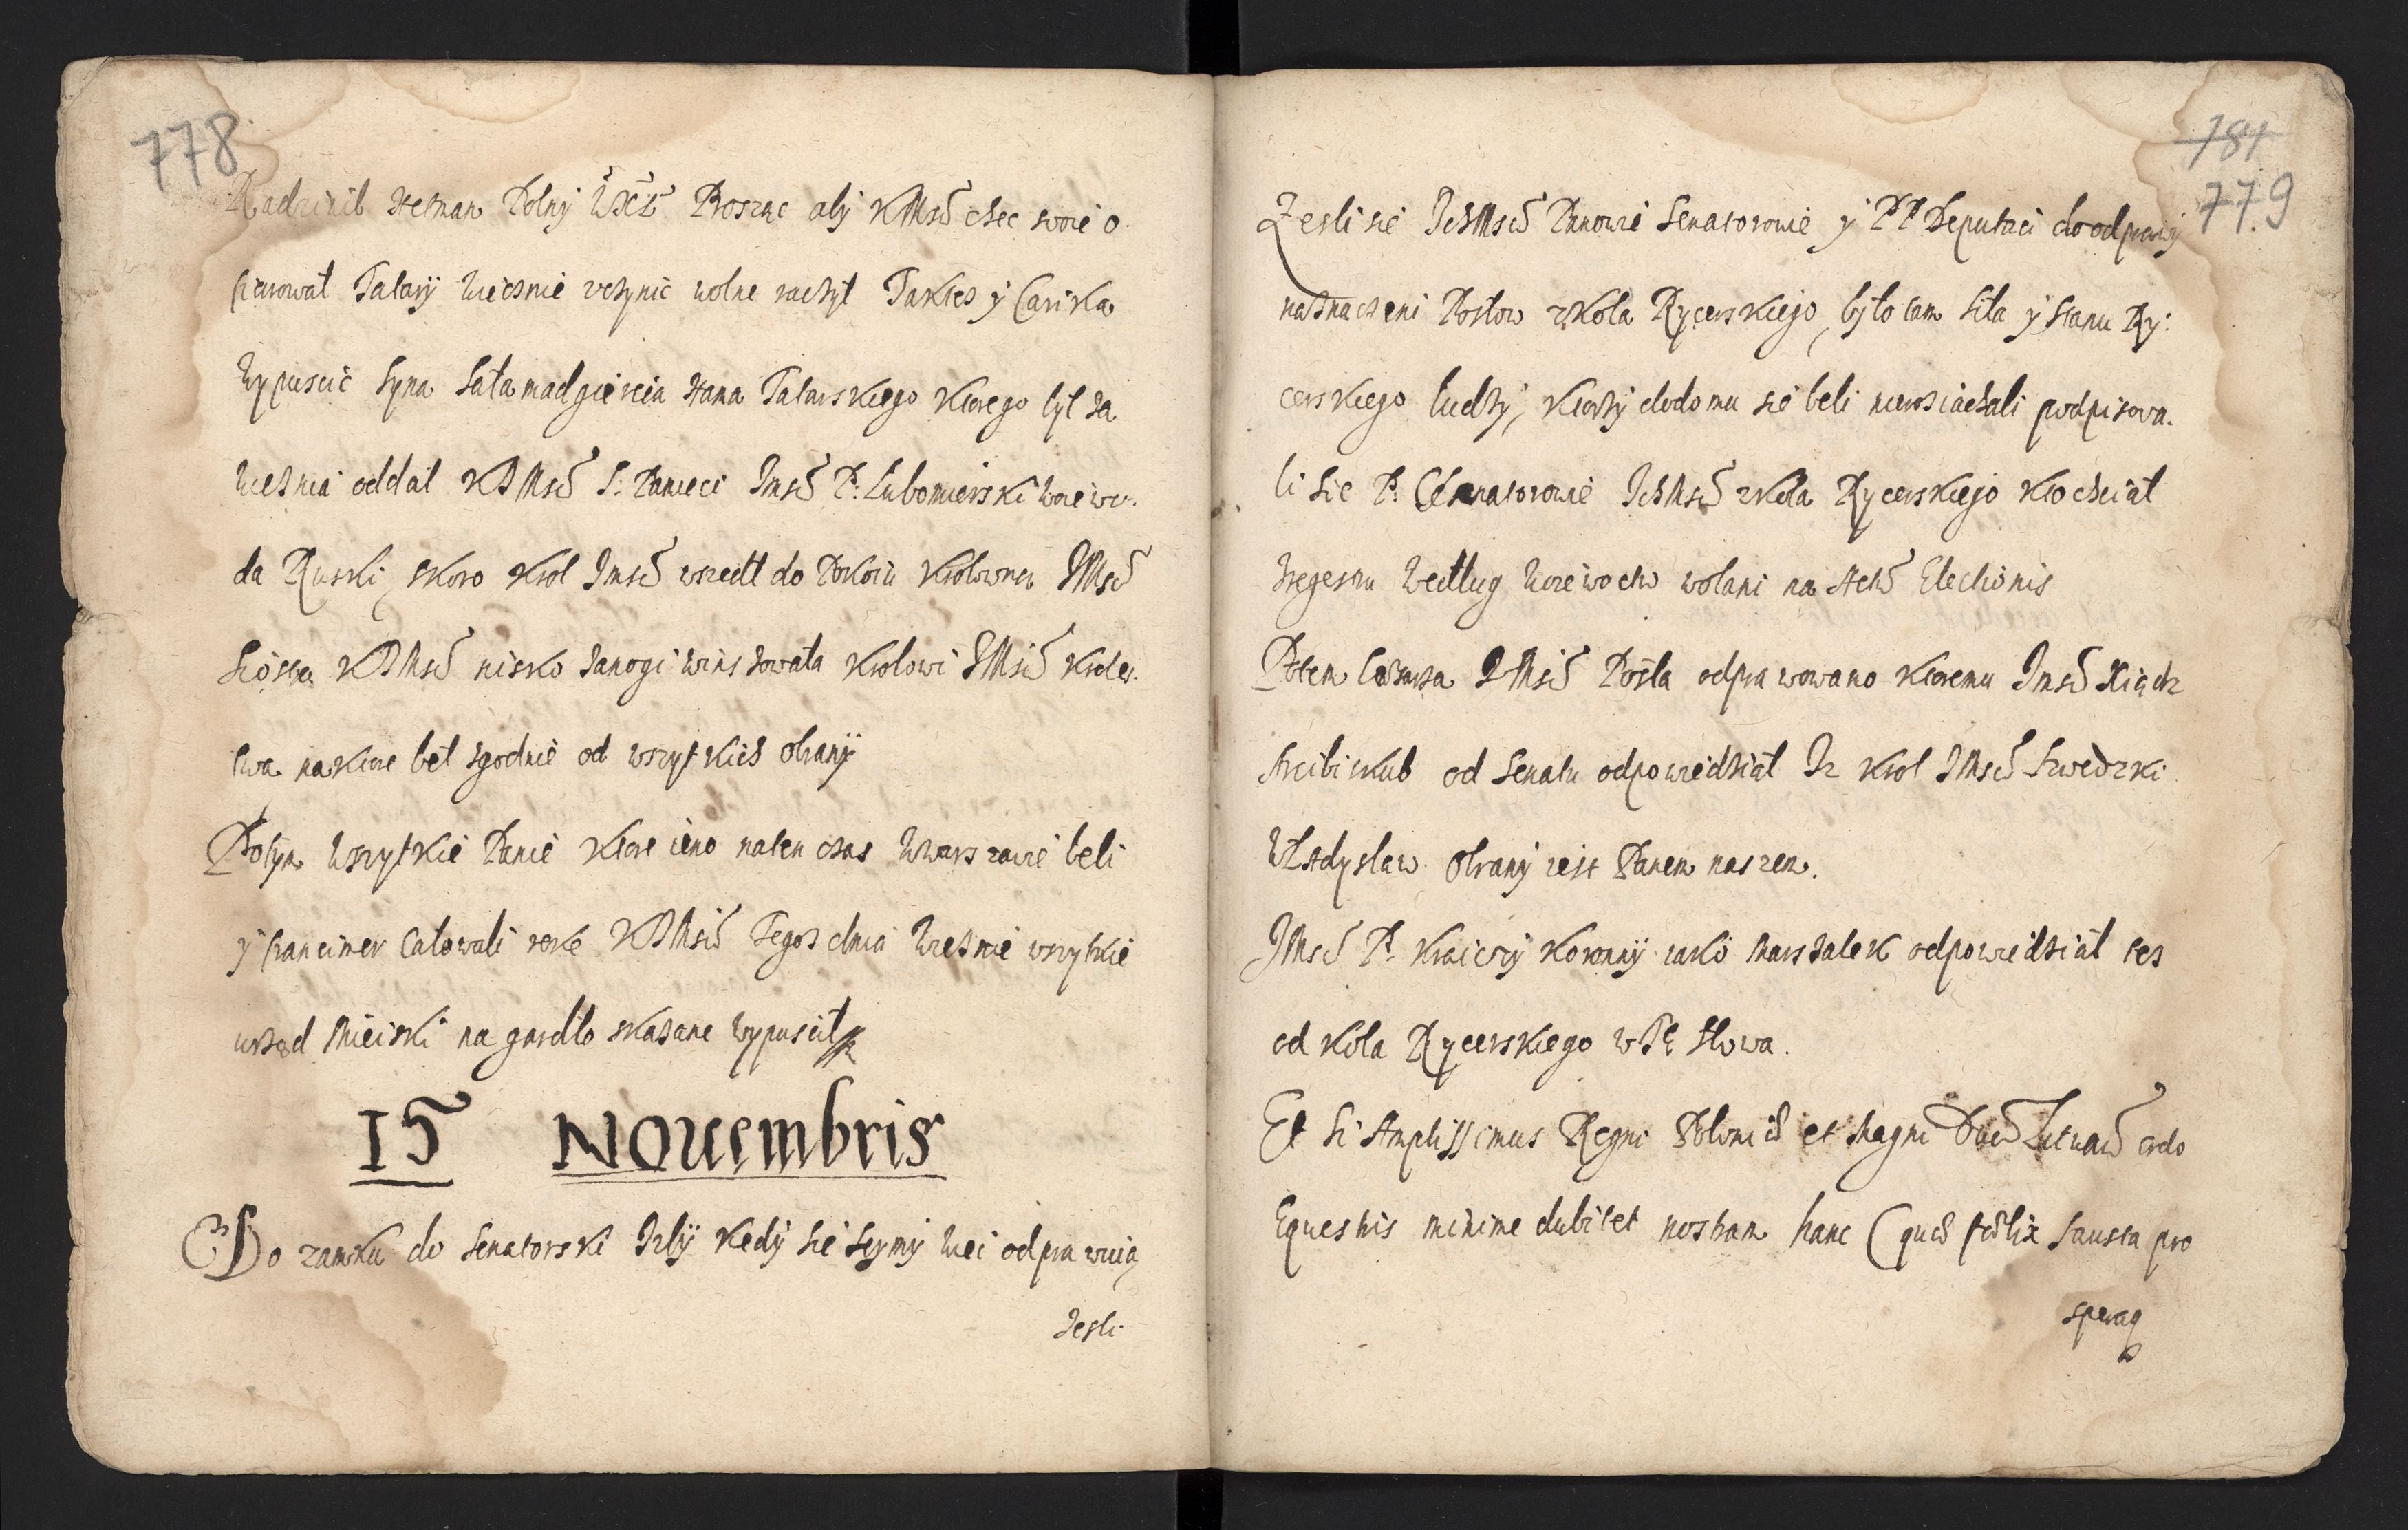 778
Radziwil Hetman Polny WXL Prosząc aby KJMsci chec swoie o
fiarował Tatary Wieżnie vczynic wolne raczył Takies y Carika
Wypuscic Syna Sałamadgiereia Hana Tatarskiego ktorego był za
Wieżnia oddał KJMsci S: Pamieci Jmsc P: Lubomierski Woiewo.
da Ruski, skoro Krol Jmsc wszedł do Pokoiu Krolowna JMsc
Siostra KJMsci nisko zanogi winszowała Krolowi JMsci Krole.
stwa na ktore beł zgodnie od wszytkich obrany
Potym Wszytkie Panie ktore ieno naten czas Wwarszawie beli
y francimer całowali reke KJMsci Tegoz dnia Wieznie wszytkie
urząd Mieiski na gardło skazane wypuscił
15 Nouembris
Do zamku do Senatorski Izby kedy sie Seymy wei odprawuią
Zesli
781
779
Zesli sie IchMsc Panowie Senatorowie y PP Deputaci do odprawy
naznaczeni Posłow zkoła Rycerskiego, było tam siła y stanu Ry:
cerskiego ludzy, ktorzy dodomu sie beli nierosiachali podpisowa.
li sie P: Senatorowie IchMsc zkoła Rycerskiego kto chciał
Wegesnu Wedlug Woiewoctw wołani na Acht Electionis
Potem Cesarza JMsci Posła odprawowano ktoremu Jmsc Xiądz
Arcibiskub od Senatu odpowiedział Iz Krol JMsc Szwedzki
Władysław Obrany iest Panem naszem.
JMsc P: Kraiczy Koronny iako Marszalek odpowiedział tes
od Koła Rycerskiego w Te słowa.
Et si Amplissimus Regni Poloniæ et Magni Duc Lituaw ordo
Equestris minime dubitet nostram hanc (quæ fœlix fausta pro
speraq